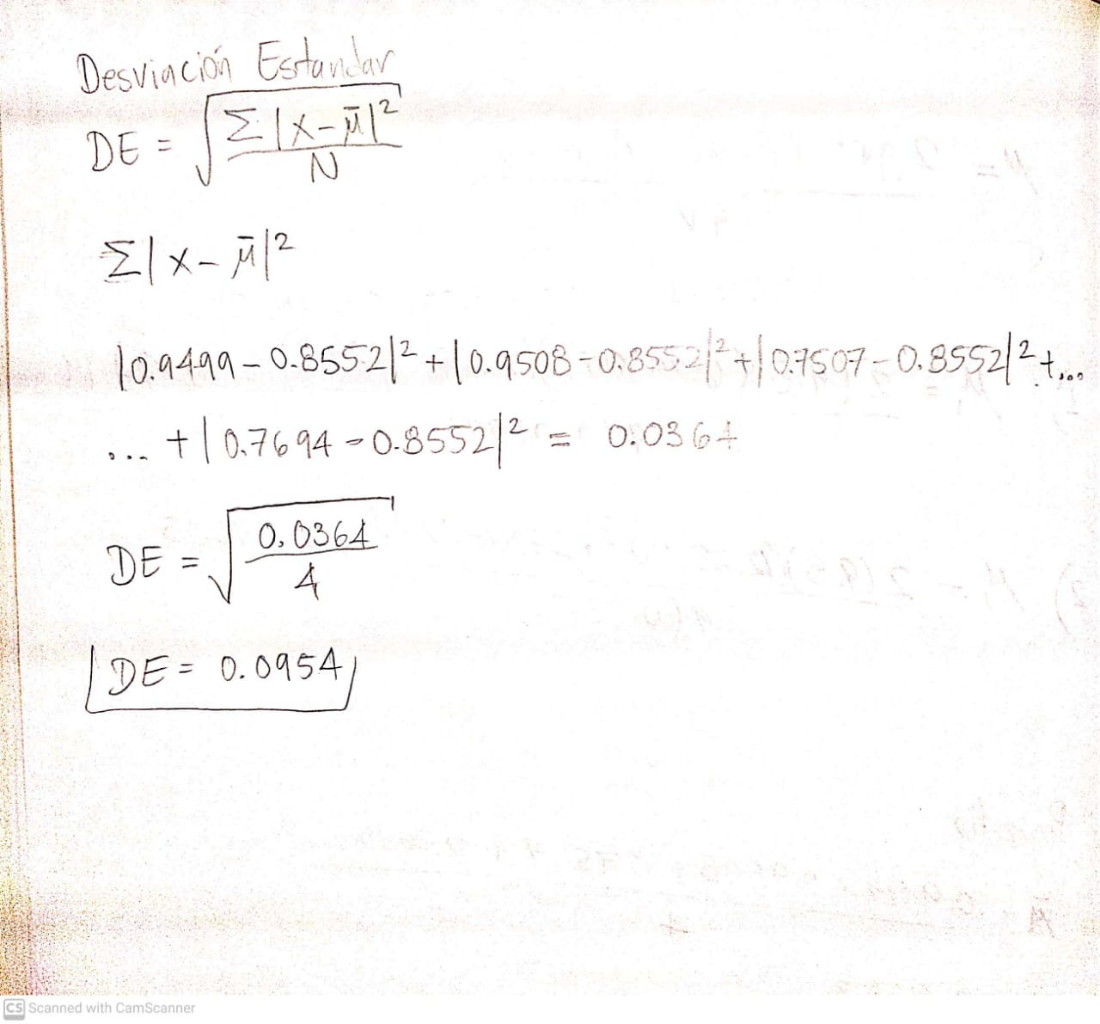 Desviación Estandar
DE = √(Σ|x-μ̄|² / N)
Σ|x-μ̄|²
|0.9499-0.8552|²+|0.9508-0.8552|²+|0.7507-0.8552|²+...
...+|0.7694-0.8552|² = 0.0364
DE = √(0.0364 / 4)
DE = 0.0954
CS Scanned with CamScanner